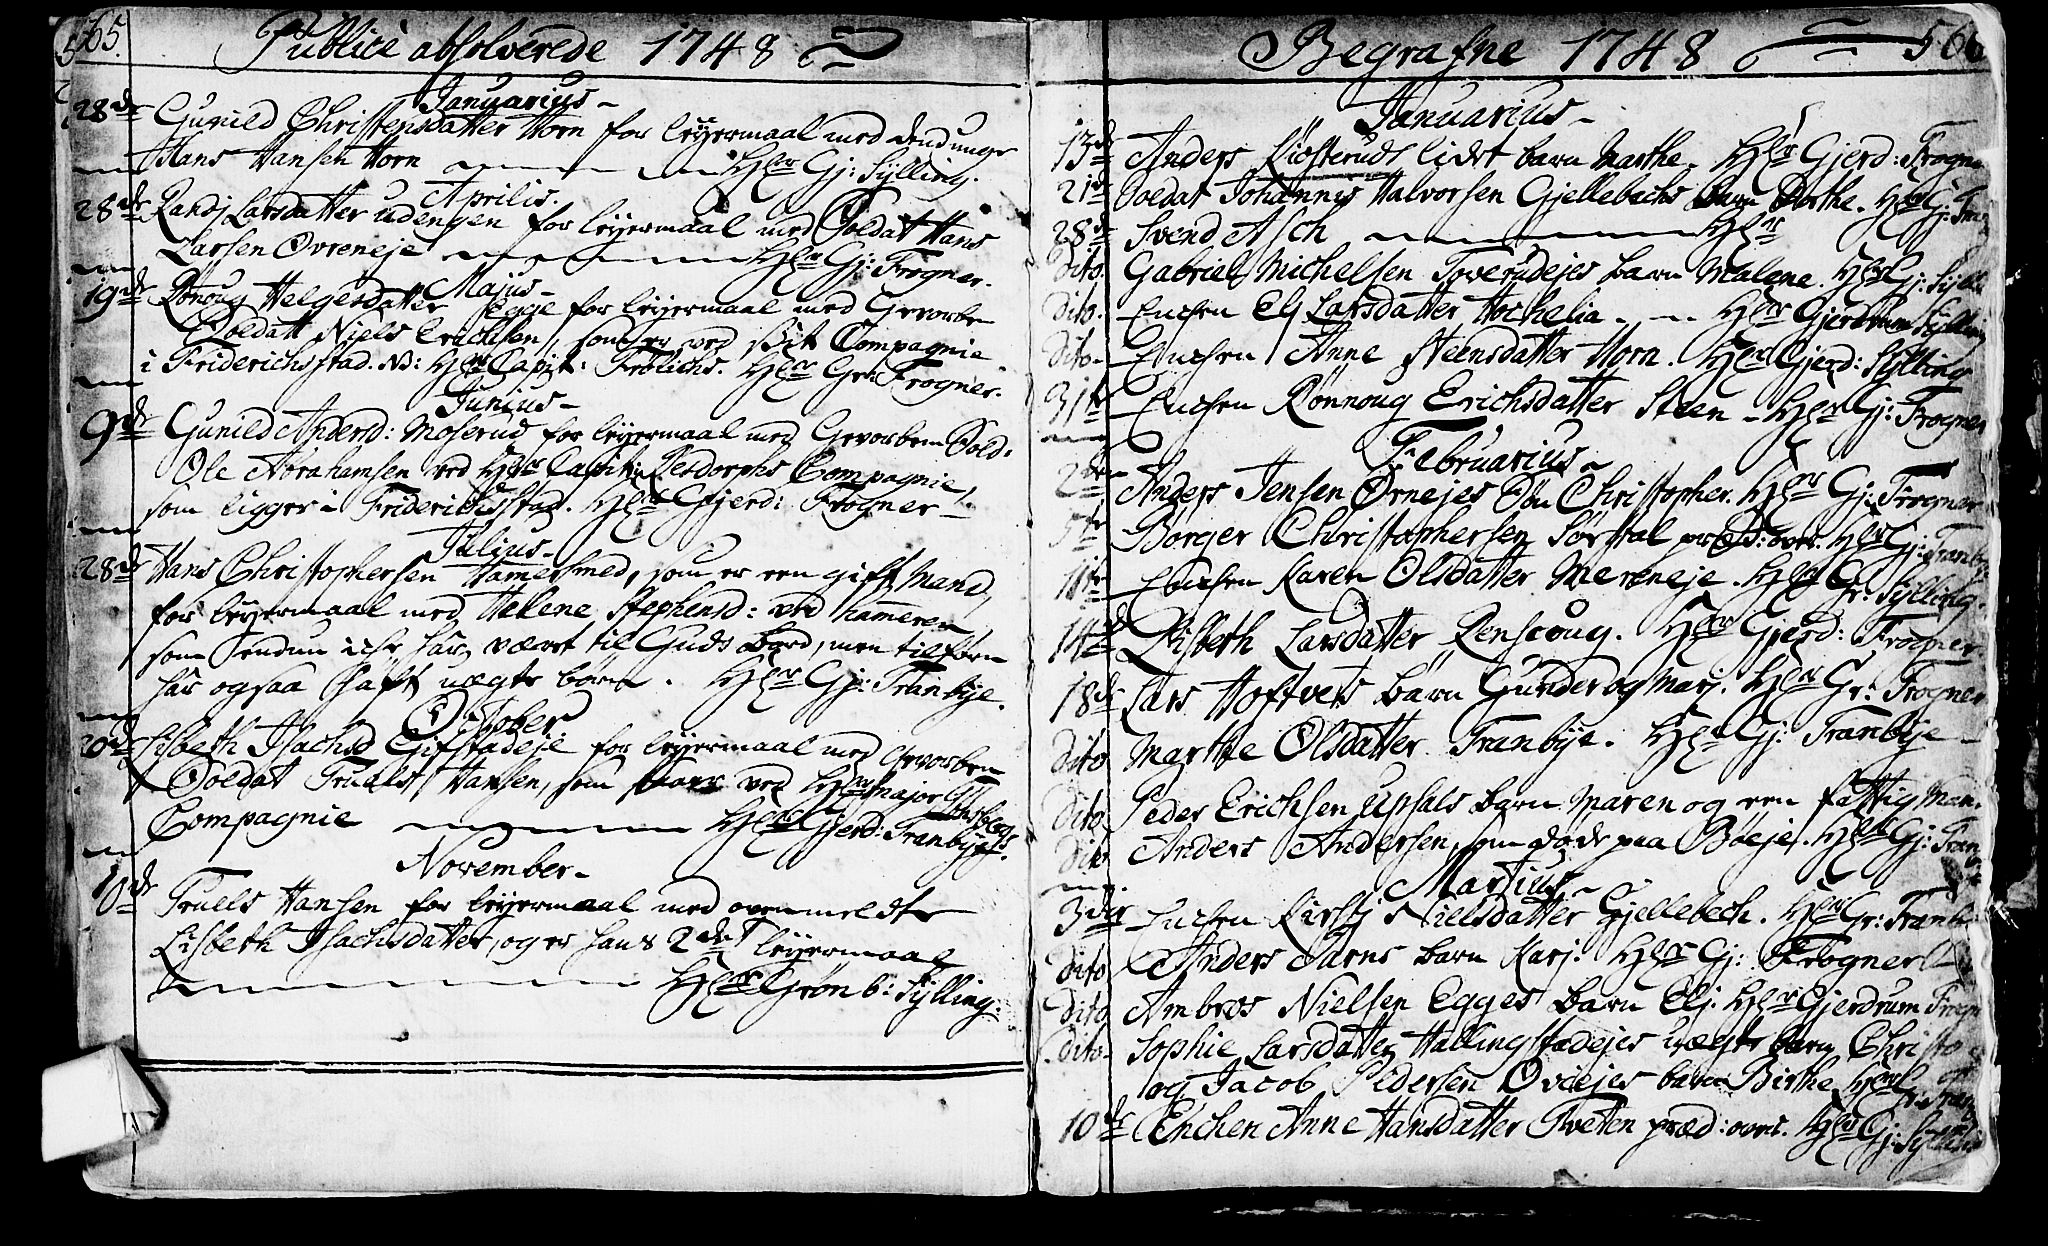 565. Publicè absolverede 1748
Januarius
28de Gunild Christensdatter Horn for leyermaal med dend unge
Hans Hansen Horn Hr Gj: Sylling.
Aprilis.
28de Randj Larsdatter udengen for leyermaal med Soldat Hans
Larsen Ovreneje Hr Gj: Frogner.
Majus
19de Rönoug Helgesdatter Egge for leyermaal med Gevorben
Soldatt Niels Erichsen, som er ved sit Compagnie
i Friderichstad. NB: Hr Capit: Frölichs. Hr Gr: Frogner.
Junius
9de Gunild Andersd: Moserud for leyermaal med Gevorben Sold:
Ole Abrahamsen ved Hr Capit: Compagnie
som ligger i Friderichstad. Hr Gjerd: Frogner
Julius
28de Hans Christophersen Hamersmed, som er een gift Mand,
for leyermaal med Helene Stephensd: ved hameren
som endnu iche har været til Guds bord, men tilforn
har ogsaa haft uægte börn. Hr Gj: Tranbye.
October
20de Lisbeth Isachsd Gifstadeje for leyermaal med Gevorben
Soldat Truels Hansen, som staar ved Hr Major
Compagnie Hr Gjerd: Tranbye.
November
10de Truels Hansen for leyermaal med ovenmeldte
Lisbeth Isachsdatter, og er hans 2det leyermaal
Hr Grönb: Sylling.
Begrafne 1748 566
Januarius
13de Anders Kiösteruds lidet barn Marthe. Hr Gjerd: Frogner
21de Soldat Johannes Halvorsen Gjellebechs barn Dorthe. Hr Gj: Tran
28de Svend Asch Hr
dito. Gabriel Michelsen Toverudejes barn Malene. Hr Gj: Sylli
dito. Enchen Elj Larsdatter Hochelia Hr Gjerdrum Sylling
dito Enchen Anne Steensdatter Horn. Hr Gjerd: Sylling
31te Enchen Rönnoug Erichsdatter Steen Hr Gj: Frogner
Februarius
2den Anders Jensen Ornejes Sön Christopher. Hr Gj: Frogner
5te Börger Christophersen Sörstal præd: over. Hr Gj: Tranby
11te Enchen Karen Olsdatter Mereneje. Hr Gr: Sylling.
14de Lisbeth Larsdatter Renscoug. Hr Gjerd: Frogner
18de Lars Hoftvets barn Gunder og Marj. Hr Gr: Frogner
dito Marthe Olsdatter Tranbye. Hr Gj: Tranbye
dito Peder Erichsen Upsals barn Maren og een fattig Man.
dito Anders Andersen, som döde paa Böeje. Hr Gj: Tran
Martius
3die Enchen Kirstj Nielsdatter Gjellebech. Hr Gr: Tranb
dito Anders Jarns barn Karj: Hr Gj: Frogner
dito Ambros Nielsen Egges barn Elj. Hr Gjerdrum Frogn
dito Sophie Larsdatter Hallingstadejes uægte barn Christo
og Jacob Pedersen Oviejes barn Birthe. Hr Gr: Tranb
10de Enchen Anne Hansdatter Tveten præd: over. Hr Gj: Sylling